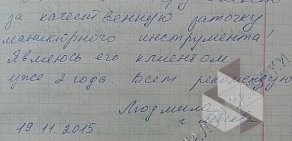 за качественную заточку
маникюрного инструмента!
Являюсь его клиентом
уже 2 года Всем рекомендую
Людмила
г.
19.11.2015